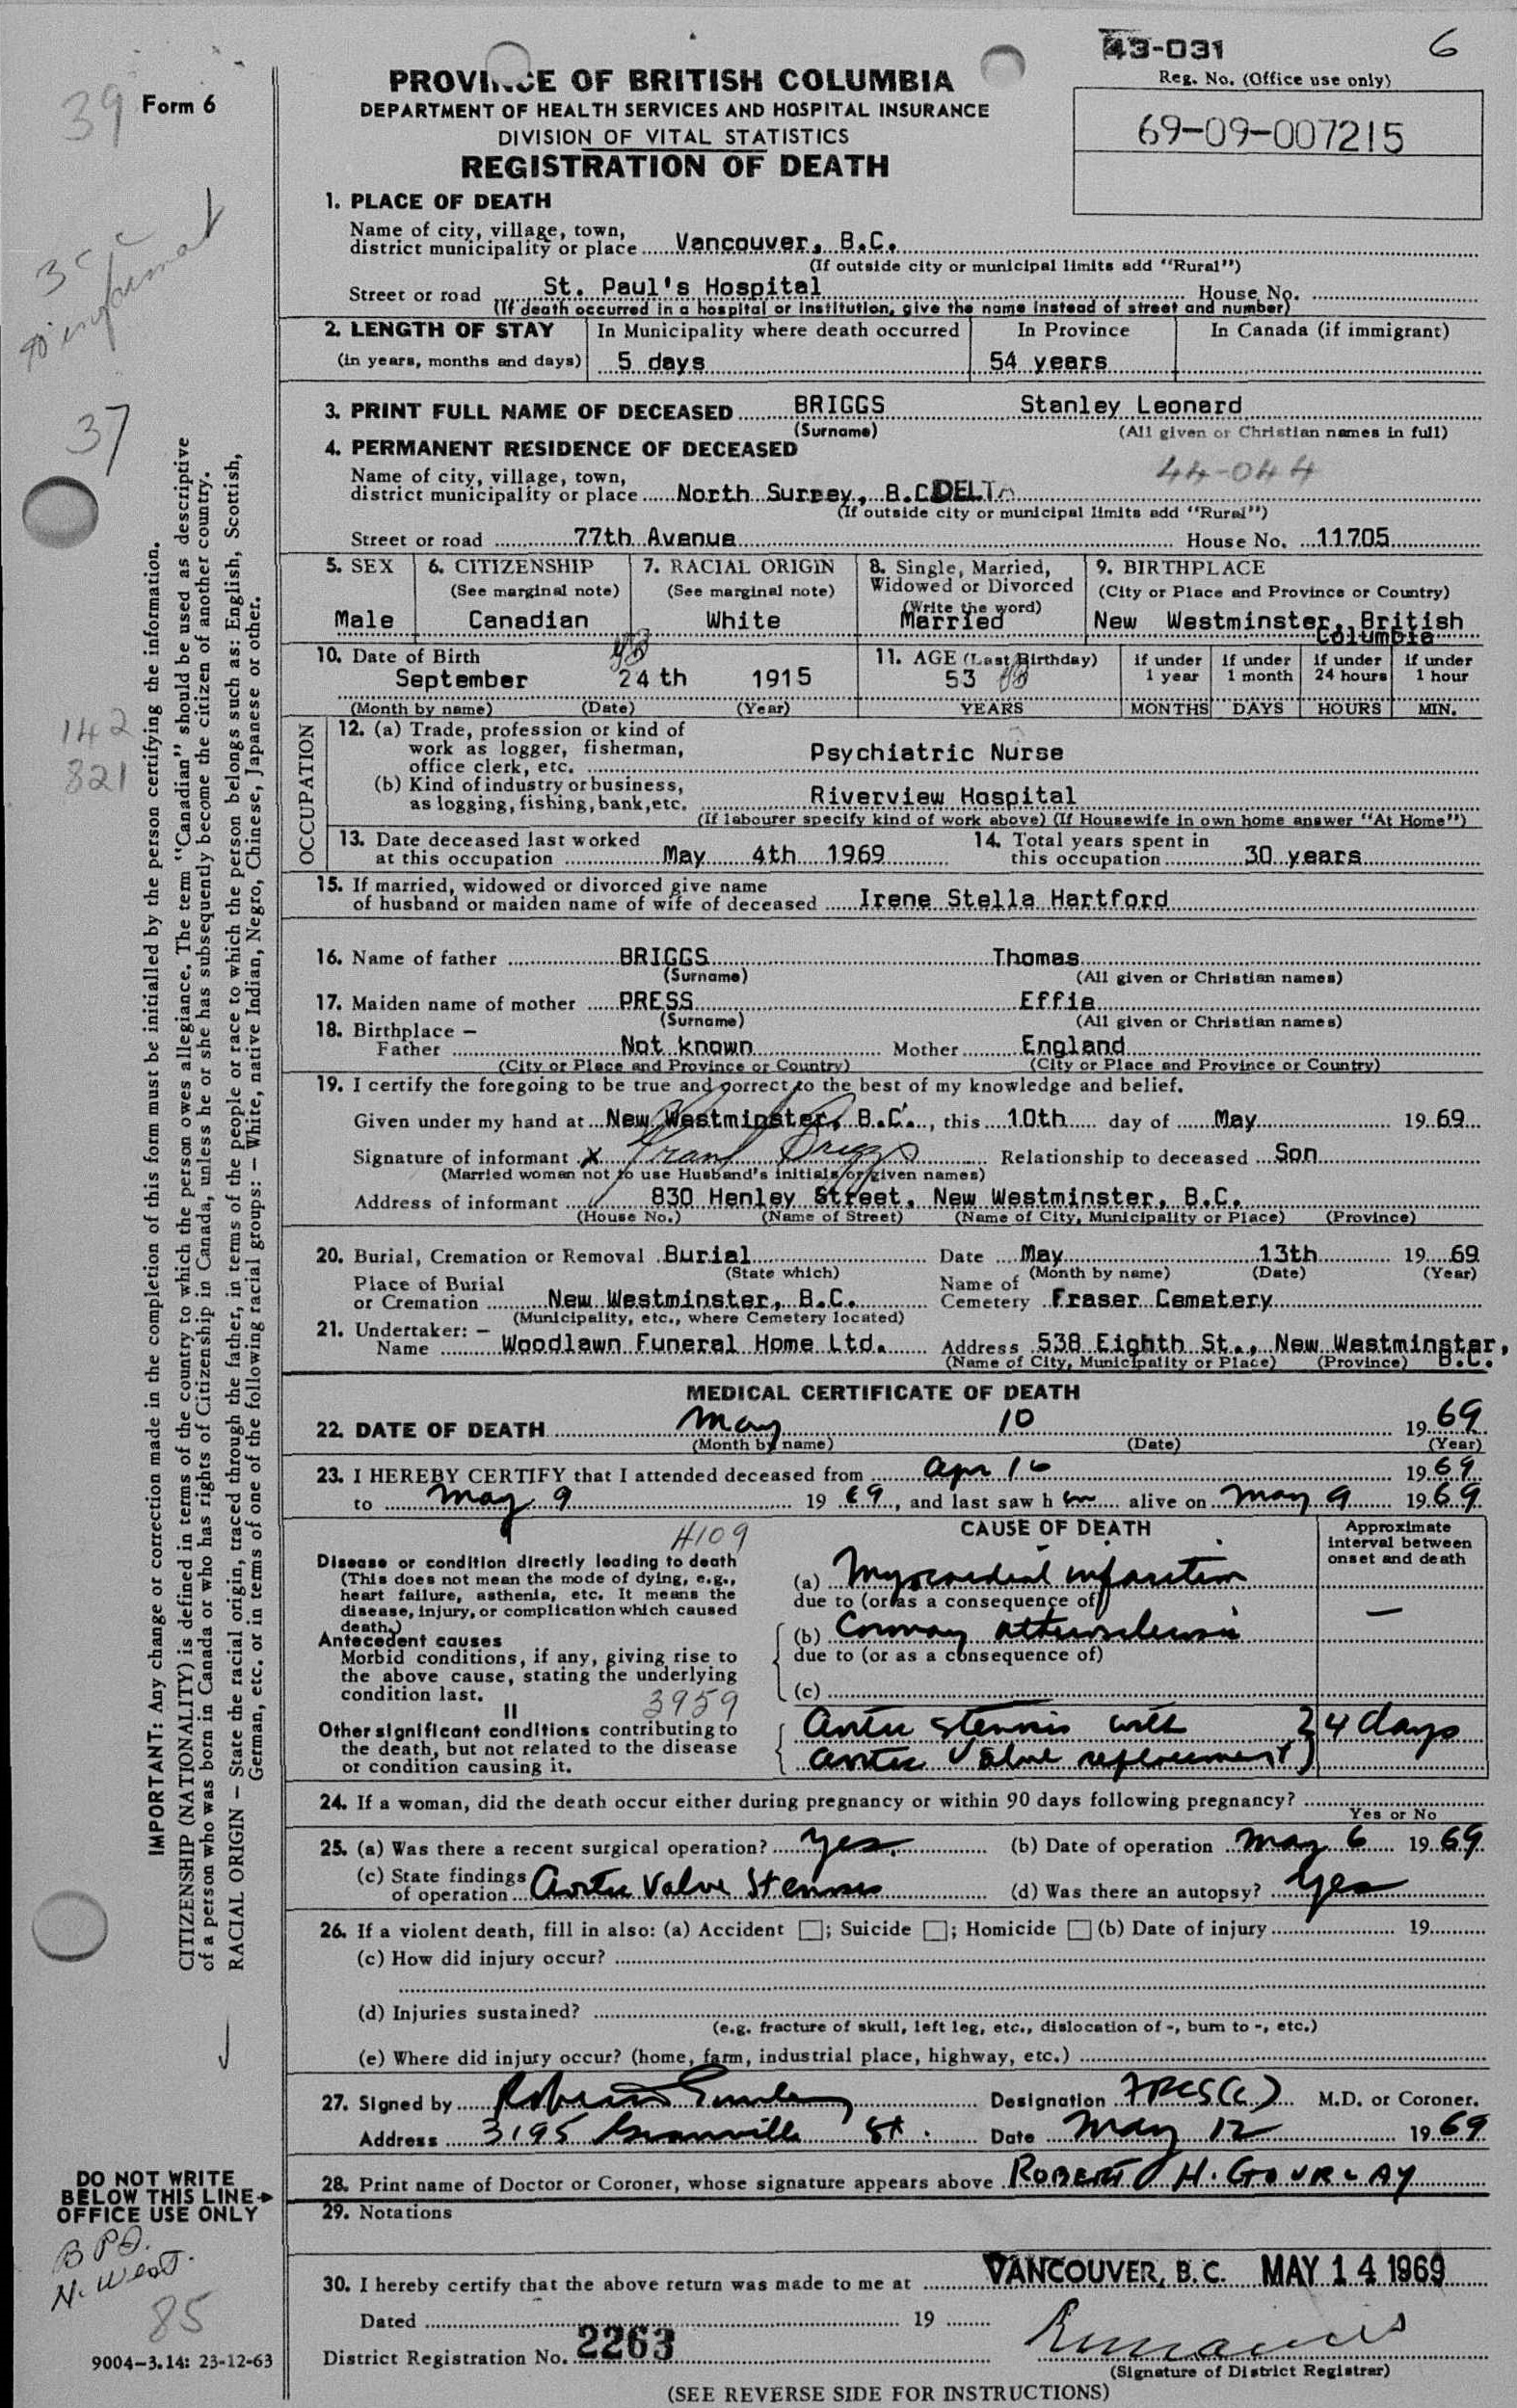 43-031 6
Reg. No. (Office use only)
69-09-007215
39 Form 6
PROVINCE OF BRITISH COLUMBIA
DEPARTMENT OF HEALTH SERVICES AND HOSPITAL INSURANCE
DIVISION OF VITAL STATISTICS
REGISTRATION OF DEATH
1. PLACE OF DEATH
Name of city, village, town,
district municipality or place Vancouver, B.C.
(If outside city or municipal limits add "Rural")
Street or road St. Paul's Hospital House No.
(If death occurred in a hospital or institution, give the name instead of street and number)
2. LENGTH OF STAY In Municipality where death occurred In Province In Canada (if immigrant)
(in years, months and days) 5 days 54 years
3. PRINT FULL NAME OF DECEASED BRIGGS Stanley Leonard
(Surname) (All given or Christian names in full)
37
4. PERMANENT RESIDENCE OF DECEASED
44-044
Name of city, village, town,
district municipality or place North Surrey, B.C. DELTA
(If outside city or municipal limits add "Rural")
Street or road 77th Avenue House No. 11705
5. SEX 6. CITIZENSHIP 7. RACIAL ORIGIN 8. Single, Married, 9. BIRTHPLACE
(See marginal note) (See marginal note) Widowed or Divorced (City or Place and Province or Country)
(Write the word)
Male Canadian White Married New Westminster, British
Columbia
10. Date of Birth 11. AGE (Last Birthday) if under 1 year if under 1 month if under 24 hours if under 1 hour
September 24th 1915 53
(Month by name) (Date) (Year) YEARS MONTHS DAYS HOURS MIN.
OCCUPATION
12. (a) Trade, profession or kind of
work as logger, fisherman,
office clerk, etc. Psychiatric Nurse
(b) Kind of industry or business,
as logging, fishing, bank, etc. Riverview Hospital
(If labourer specify kind of work above) (If Housewife in own home answer "At Home")
142
821
13. Date deceased last worked
at this occupation May 4th 1969
14. Total years spent in
this occupation 30 years
15. If married, widowed or divorced give name
of husband or maiden name of wife of deceased Irene Stella Hartford
16. Name of father BRIGGS Thomas
(Surname) (All given or Christian names)
17. Maiden name of mother PRESS Effie
(Surname) (All given or Christian names)
18. Birthplace —
Father Not known Mother England
(City or Place and Province or Country) (City or Place and Province or Country)
19. I certify the foregoing to be true and correct to the best of my knowledge and belief.
Given under my hand at New Westminster, B.C., this 10th day of May 1969
Signature of informant x Briggs Relationship to deceased Son
(Married woman not to use Husband's initials or given names)
Address of informant 830 Henley Street, New Westminster, B.C.
(House No.) (Name of Street) (Name of City, Municipality or Place) (Province)
20. Burial, Cremation or Removal Burial Date May 13th 1969
(State which) (Month by name) (Date) (Year)
Place of Burial
or Cremation New Westminster, B.C.
Name of
Cemetery Fraser Cemetery
(Municipality, etc., where Cemetery located)
21. Undertaker: —
Name Woodlawn Funeral Home Ltd. Address 538 Eighth St., New Westminster,
(Name of City, Municipality or Place) (Province) B.C.
MEDICAL CERTIFICATE OF DEATH
22. DATE OF DEATH May 10 1969
(Month by name) (Date) (Year)
23. I HEREBY CERTIFY that I attended deceased from Apr 16 1969
to May 9 1969, and last saw h im alive on May 9 1969
CAUSE OF DEATH
Approximate
interval between
onset and death
4109
Disease or condition directly leading to death
(This does not mean the mode of dying, e.g.,
heart failure, asthenia, etc. It means the
disease, injury, or complication which caused
death.)
(a) Myocardial infarction
due to (or as a consequence of)
Antecedent causes
Morbid conditions, if any, giving rise to
the above cause, stating the underlying
condition last.
(b) Coronary atherosclerosis —
due to (or as a consequence of)
(c)
II
3959
Other significant conditions contributing to
the death, but not related to the disease
or condition causing it.
Aortic stenosis with
aortic valve replacement } 4 days
24. If a woman, did the death occur either during pregnancy or within 90 days following pregnancy?
Yes or No
25. (a) Was there a recent surgical operation? Yes. (b) Date of operation May 6 1969
(c) State findings
of operation Aortic Valve Stenosis (d) Was there an autopsy? Yes
26. If a violent death, fill in also: (a) Accident ☐; Suicide ☐; Homicide ☐ (b) Date of injury 19
(c) How did injury occur?
(d) Injuries sustained?
(e.g. fracture of skull, left leg, etc., dislocation of -, burn to -, etc.)
(e) Where did injury occur? (home, farm, industrial place, highway, etc.)
27. Signed by Robert Gourlay Designation FRCS(C) M.D. or Coroner.
Address 3195 Granville St. Date May 12 1969
28. Print name of Doctor or Coroner, whose signature appears above ROBERT H. GOURLAY
29. Notations
30. I hereby certify that the above return was made to me at VANCOUVER, B.C. MAY 14 1969
Dated 19
District Registration No. 2263
(Signature of District Registrar)
(SEE REVERSE SIDE FOR INSTRUCTIONS)
IMPORTANT: Any change or correction made in the completion of this form must be initialled by the person certifying the information.
CITIZENSHIP (NATIONALITY) is defined in terms of the country to which the person owes allegiance. The term "Canadian" should be used as descriptive
of a person who was born in Canada or who has rights of Citizenship in Canada, unless he or she has subsequently become the citizen of another country.
RACIAL ORIGIN — State the racial origin, traced through the father, in terms of the people or race to which the person belongs such as: English, Scottish,
German, etc. or in terms of one of the following racial groups: — White, native Indian, Negro, Chinese, Japanese or other.
DO NOT WRITE
BELOW THIS LINE→
OFFICE USE ONLY
N. West.
85
9004-3.14: 23-12-63